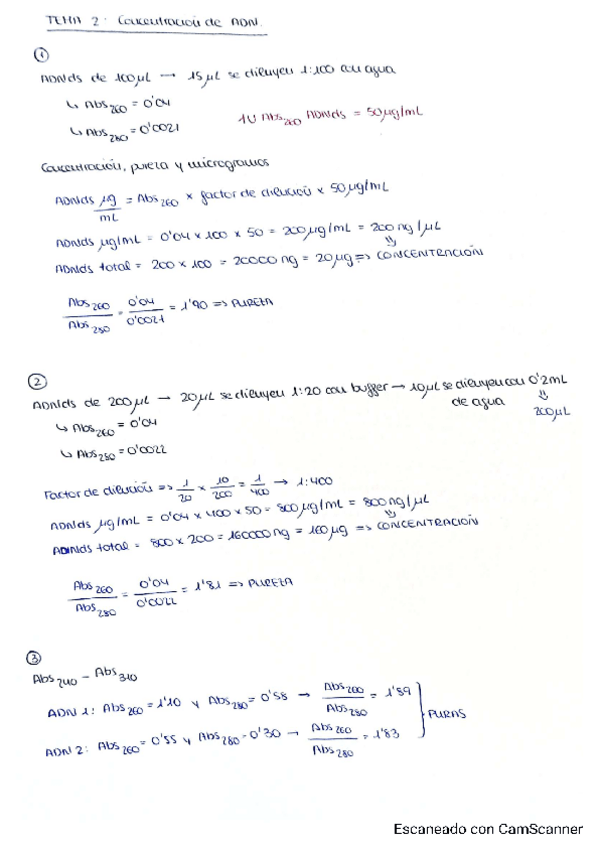 TEMA 2: Concentración de ADN.
①
ADNds de 100µL → 15µL se diluyen 1:100 con agua
↳ Abs260 = 0'04
↳ Abs280 = 0'0021
1U Abs260 ADNds = 50µg/mL
Concentración, pureza y microgramos
ADNds µg/mL = Abs260 × factor de dilución × 50µg/mL
ADNds µg/mL = 0'04 × 100 × 50 = 200µg/mL = 200ng/µL
ADNds total = 200 × 100 = 20000ng = 20µg ⇒ CONCENTRACIÓN
Abs260/Abs280 = 0'04/0'0021 = 1'90 ⇒ PUREZA
②
ADNds de 200µL → 20µL se diluyen 1:20 con buffer → 10µL se diluyen con 0'2mL
de agua
⇓
200µL
↳ Abs260 = 0'04
↳ Abs280 = 0'0022
Factor de dilución ⇒ 1/20 × 10/200 = 1/400 → 1:400
ADNds µg/mL = 0'04 × 400 × 50 = 800µg/mL = 800ng/µL
ADNds total = 800 × 200 = 160000ng = 160µg ⇒ CONCENTRACIÓN
Abs260/Abs280 = 0'04/0'0022 = 1'81 ⇒ PUREZA
③
Abs240 - Abs310
ADN 1: Abs260 = 1'10 y Abs280 = 0'58 → Abs260/Abs280 = 1'89
ADN 2: Abs260 = 0'55 y Abs280 = 0'30 → Abs260/Abs280 = 1'83
PURAS
Escaneado con CamScanner